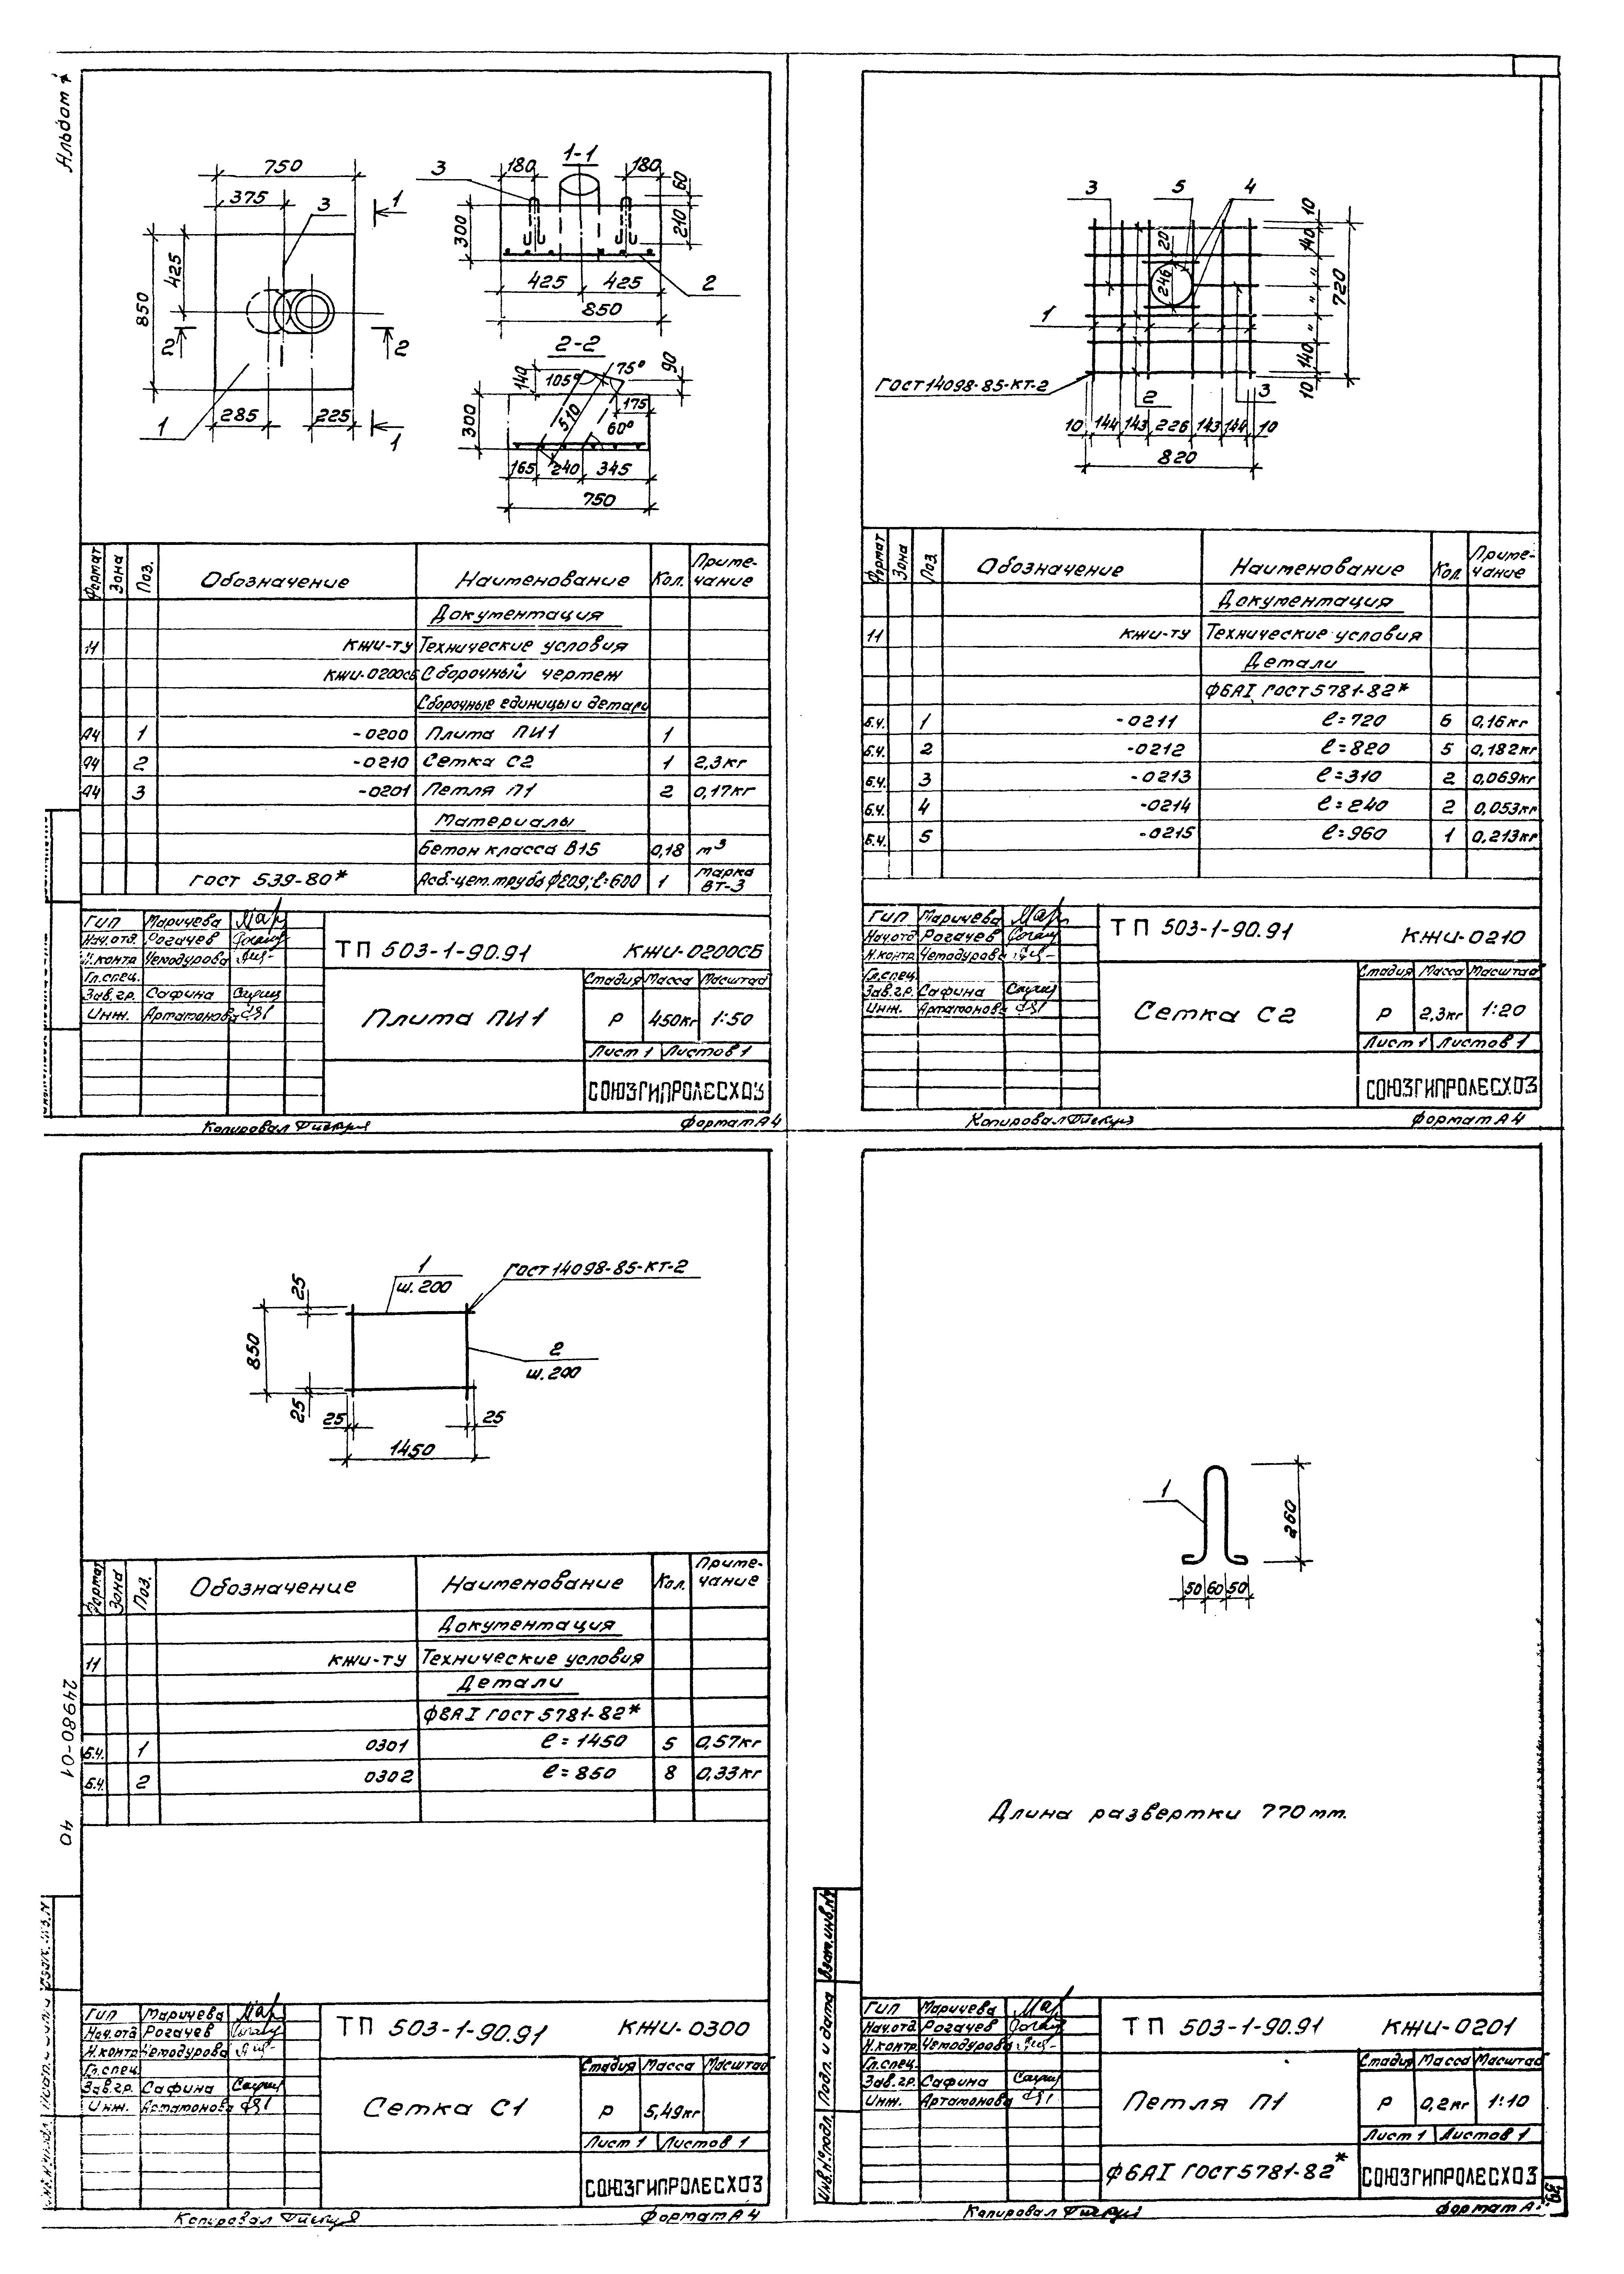 Альбом 4
750
375
3
1
850
425
2
2
285
225
1
1
1-1
3
180
180
60
300
210
425
425
2
850
2-2
140
105°
75°
90
300
510
175
60°
165
240
345
750
Формат
Зона
Поз.
Обозначение
Наименование
Кол.
Приме-
чание
Документация
11 КЖИ-ТУ Технические условия
КЖИ-0200СБ Сборочный чертеж
Сборочные единицы и детали
А4 1 -0200 Плита ПИ1 1
А4 2 -0210 Сетка С2 1 2,3кг
А4 3 -0201 Петля П1 2 0,17кг
Материалы
Бетон класса В15 0,18 m³
ГОСТ 539-80* Асб.-цем. труба ф209; ℓ=600 1 марка ВТ-3
ГИП Маричева
Нач.отд. Рогачев
Н.контр. Чемодурова
Гл.спец.
Зав.гр. Сафина
Инж. Артамонова
ТП 503-1-90.91 КЖИ-0200СБ
Плита ПИ1
Стадия Масса Масштаб
Р 450кг 1:50
Лист 1 Листов 1
СОЮЗГИПРОЛЕСХОЗ
Копировал
Формат А4
3
5
4
10
140
20
246
"
"
"
720
1
140
10
ГОСТ 14098-85-КТ-2
2
3
10 144 143 226 143 144 10
820
Формат
Зона
Поз.
Обозначение
Наименование
Кол.
Приме-
чание
Документация
11 КЖИ-ТУ Технические условия
Детали
ф6АI ГОСТ 5781-82*
Б.Ч. 1 -0211 ℓ=720 6 0,16кг
Б.Ч. 2 -0212 ℓ=820 5 0,182кг
Б.Ч. 3 -0213 ℓ=310 2 0,069кг
Б.Ч. 4 -0214 ℓ=240 2 0,053кг
Б.Ч. 5 -0215 ℓ=960 1 0,213кг
ГИП Маричева
Нач.отд. Рогачев
Н.контр. Чемодурова
Гл.спец.
Зав.гр. Сафина
Инж. Артамонова
ТП 503-1-90.91 КЖИ-0210
Сетка С2
Стадия Масса Масштаб
Р 2,3кг 1:20
Лист 1 Листов 1
СОЮЗГИПРОЛЕСХОЗ
Копировал
Формат А4
1
ш.200
ГОСТ 14098-85-КТ-2
25
850
2
ш.200
25
25
25
1450
Формат
Зона
Поз.
Обозначение
Наименование
Кол.
Приме-
чание
Документация
11 КЖИ-ТУ Технические условия
Детали
ф8АI ГОСТ 5781-82*
Б.Ч. 1 0301 ℓ=1450 5 0,57кг
Б.Ч. 2 0302 ℓ=850 8 0,33кг
24980-01 40
ГИП Маричева
Нач.отд. Рогачев
Н.контр. Чемодурова
Гл.спец.
Зав.гр. Сафина
Инж. Артамонова
ТП 503-1-90.91 КЖИ-0300
Сетка С1
Стадия Масса Масштаб
Р 5,49кг
Лист 1 Листов 1
СОЮЗГИПРОЛЕСХОЗ
Копировал
Формат А4
1
260
50 60 50
Длина развертки 770 mm.
Взам.инв.№
Подп. и дата
Инв.№подл.
ГИП Маричева
Нач.отд. Рогачев
Н.контр. Чемодурова
Гл.спец.
Зав.гр. Сафина
Инж. Артамонова
ТП 503-1-90.91 КЖИ-0201
Петля П1
Стадия Масса Масштаб
Р 0,2кг 1:10
Лист 1 Листов 1
ф6АI ГОСТ 5781-82*
СОЮЗГИПРОЛЕСХОЗ
Копировал
Формат А
39